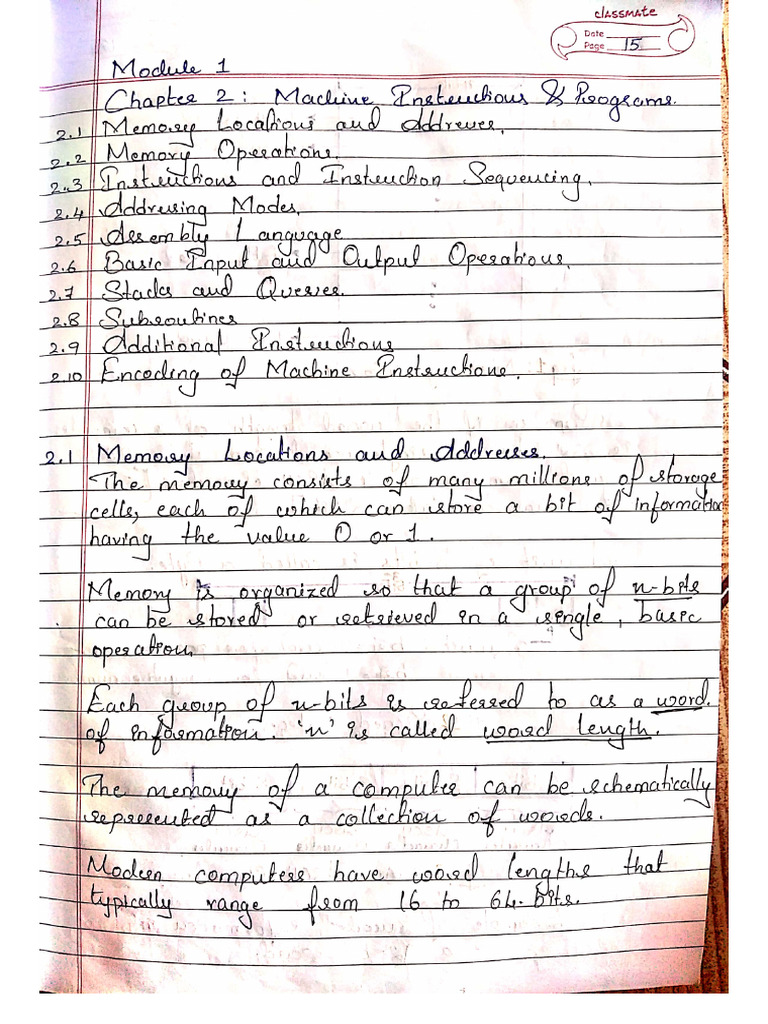 classmate
Date
Page 15
Module 1
Chapter 2: Machine Instructions & Programs.
2.1 Memory Locations and Addresses.
2.2 Memory Operations.
2.3 Instructions and Instruction Sequencing.
2.4 Addressing Modes.
2.5 Assembly Language
2.6 Basic Input and Output Operations.
2.7 Stacks and Queues.
2.8 Subroutines
2.9 Additional Instructions
2.10 Encoding of Machine Instructions.
2.1 Memory Locations and Addresses.
The memory consists of many millions of storage
cells, each of which can store a bit of information
having the value 0 or 1.
Memory is organized so that a group of n-bits
can be stored or retrieved in a single, basic
operation.
Each group of n-bits is referred to as a word.
of information. 'n' is called word length.
The memory of a computer can be schematically
represented as a collection of words.
Modern computers have word lengths that
typically range from 16 to 64-bits.